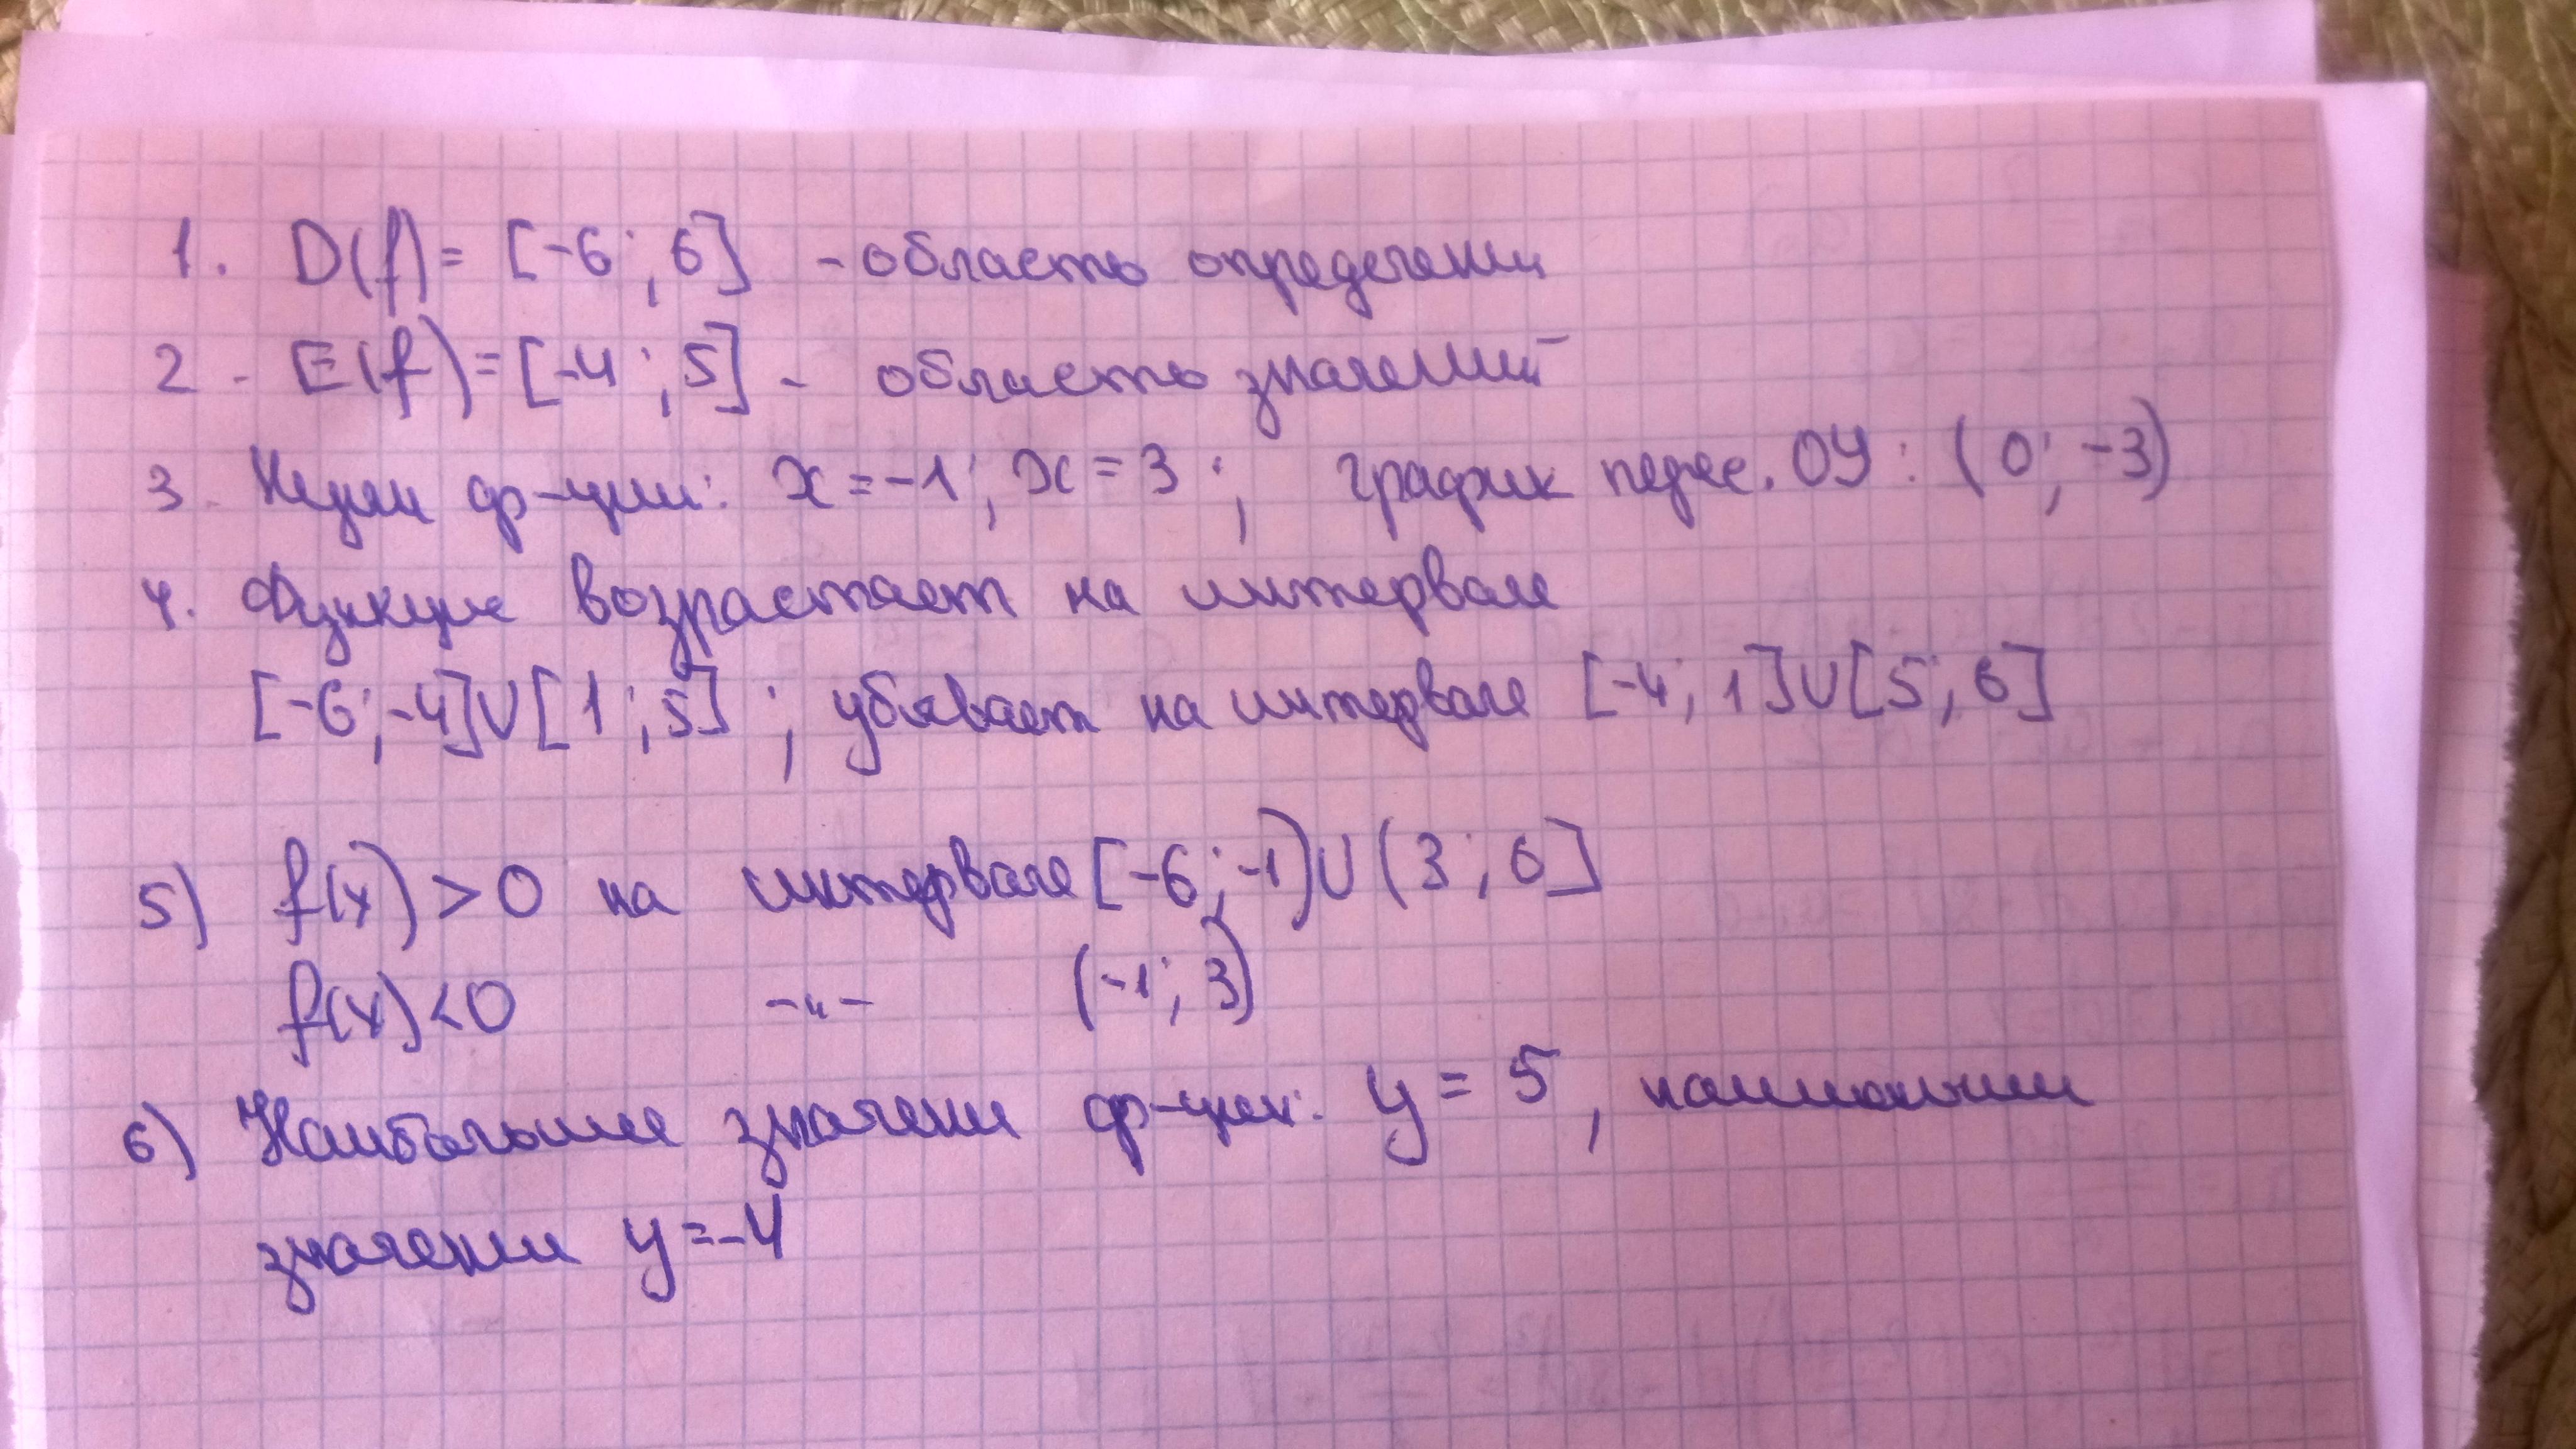 1. D(f) = [-6; 6] - область определени
2. E(f) = [-4; 5] - область значений
3. Нули ф-ции: x = -1; x = 3; график перес. ОУ: (0; -3)
4. Функция возрастает на интервале
[-6; -4]∪[1; 5]; убывает на интервале [-4; 1]∪[5; 6]
5) f(x) > 0 на интервале [-6; -1)∪(3; 6]
f(x) < 0 -"- (-1; 3)
6) Наибольшее значение ф-ции: y = 5, наименьшее
значение y = -4